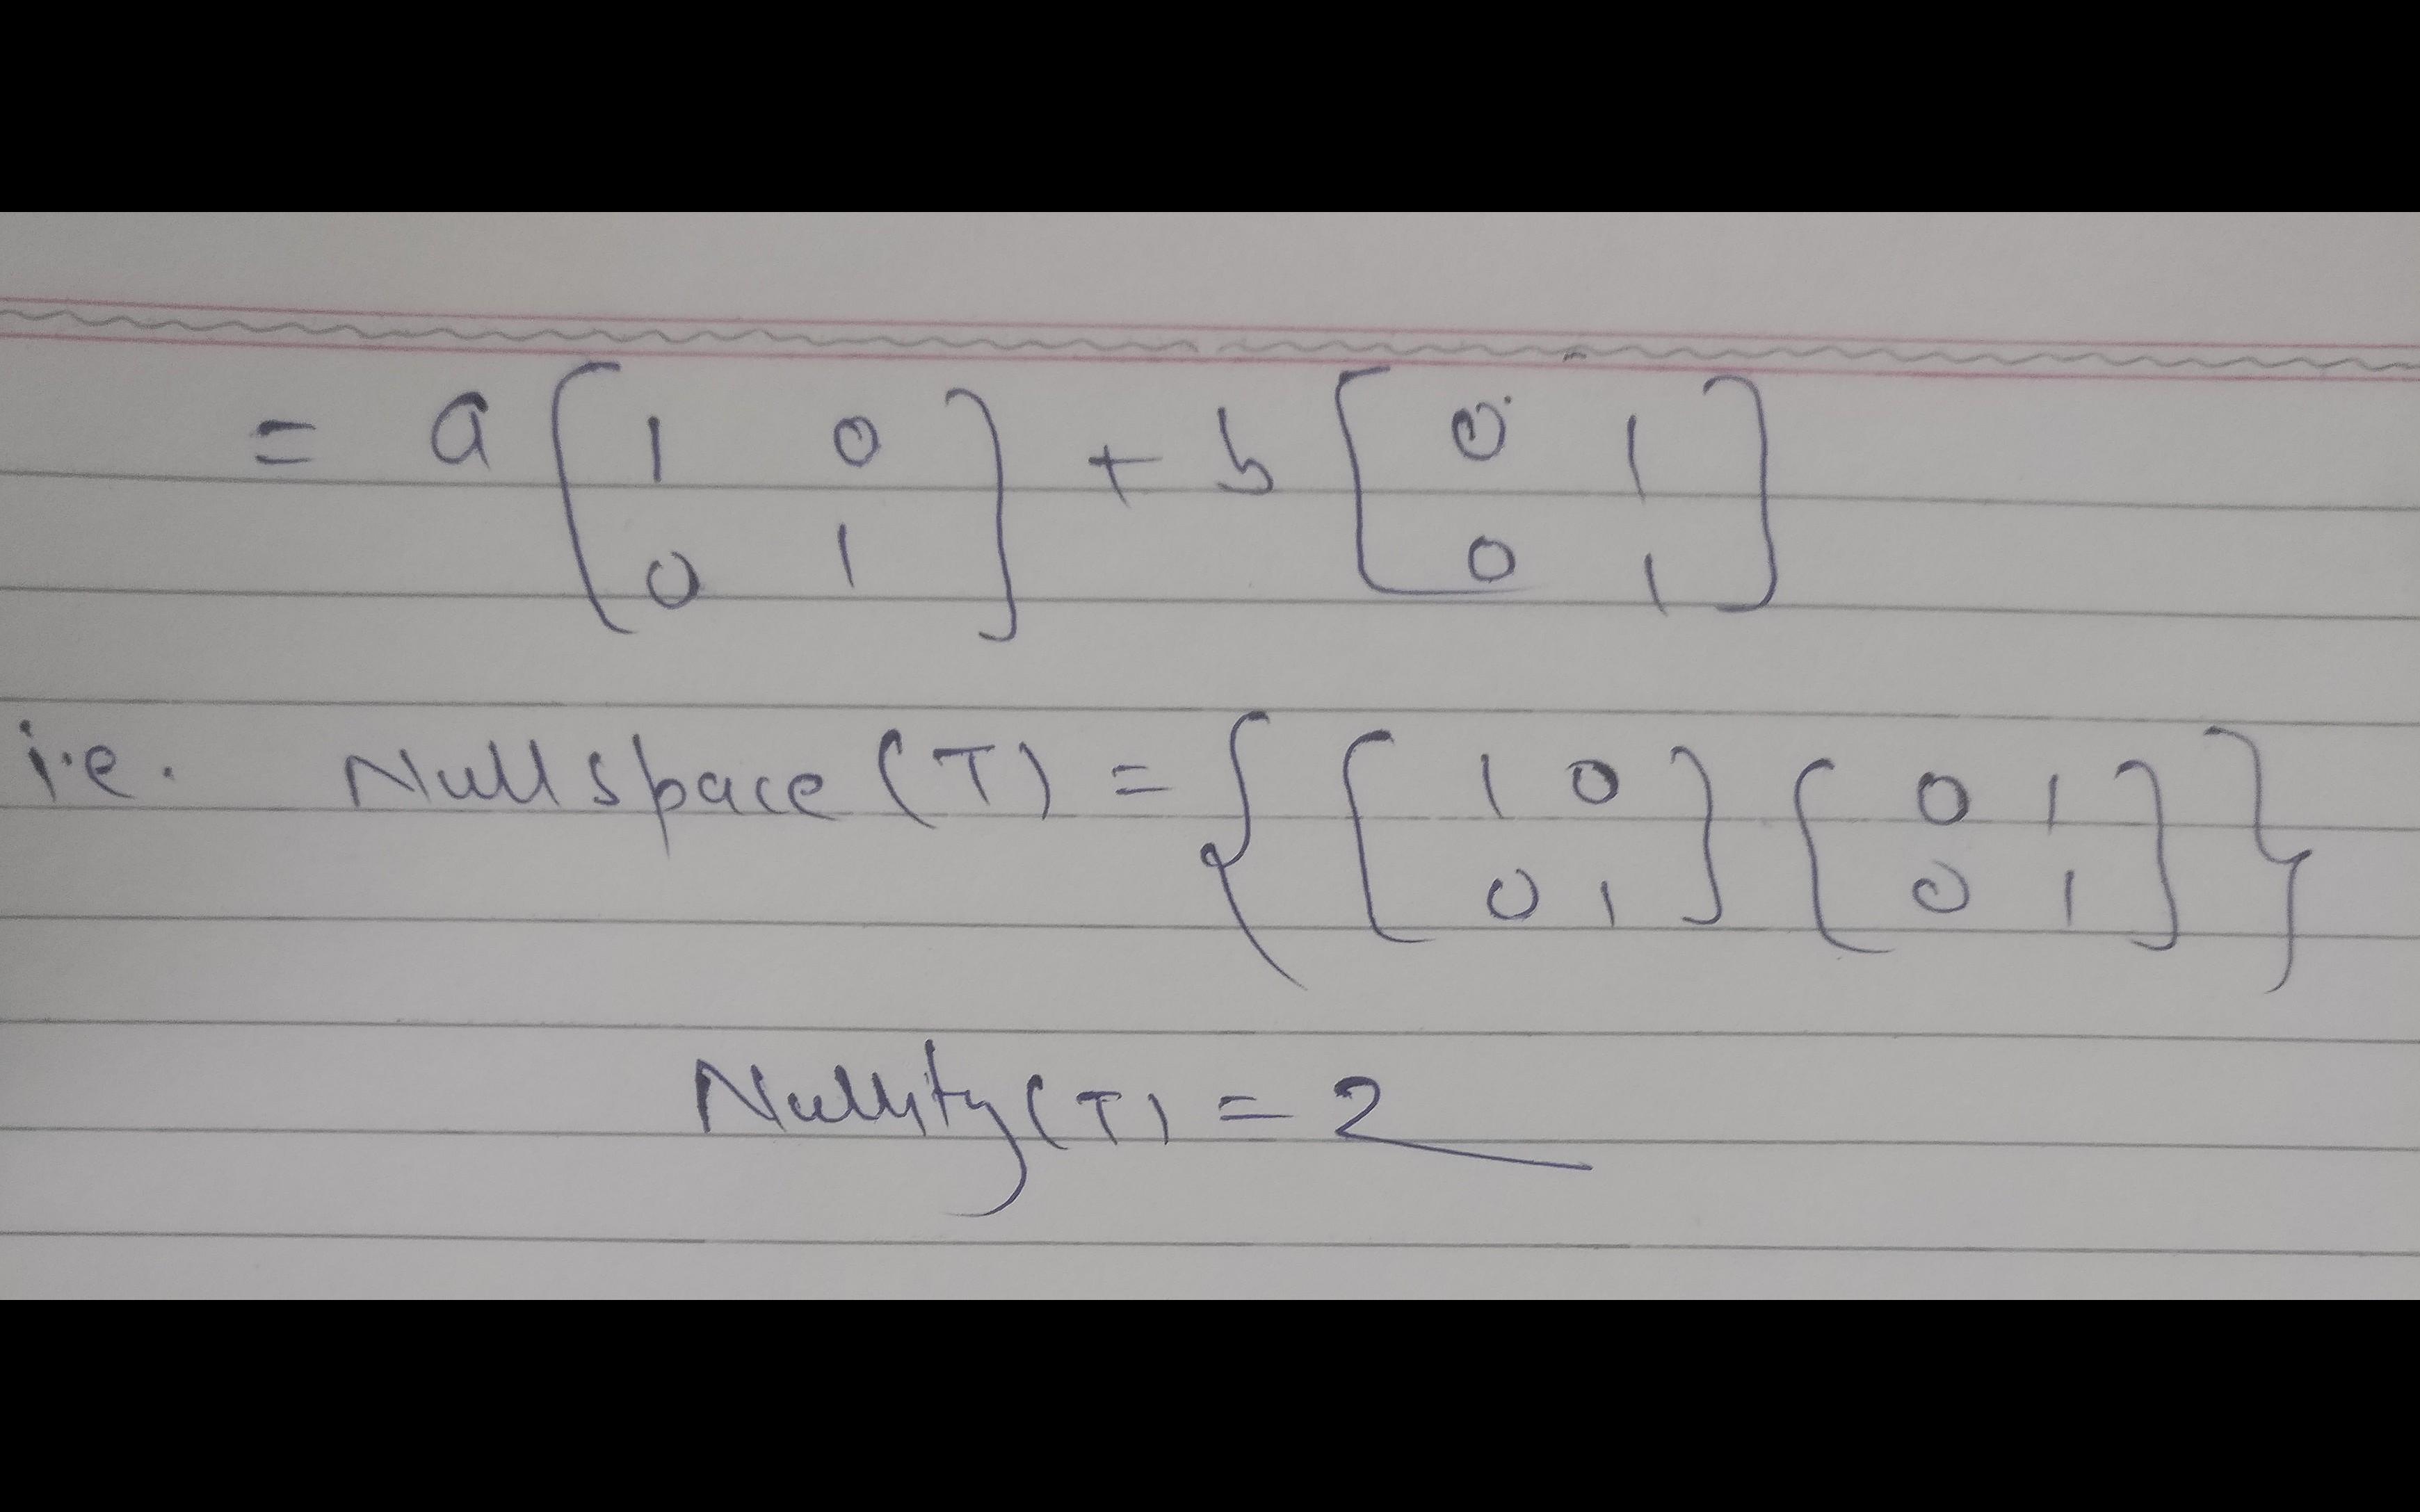 = a [ 1 0 ; 0 1 ] + b [ 0 1 ; 0 1 ]
i.e. Null space (T) = { [ 1 0 ; 0 1 ] [ 0 1 ; 0 1 ] }
Nullity (T) = 2